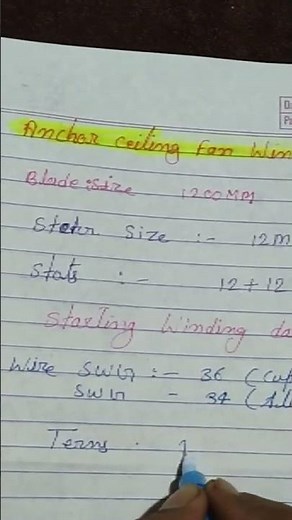 Anchor ceiling Fan Win
Blade size 1200MM
Stator Size :- 12m
Slots :- 12+12
Starting Winding da
Wire SWG :- 36 (Cup
SWG - 34 (Alu
Terns :